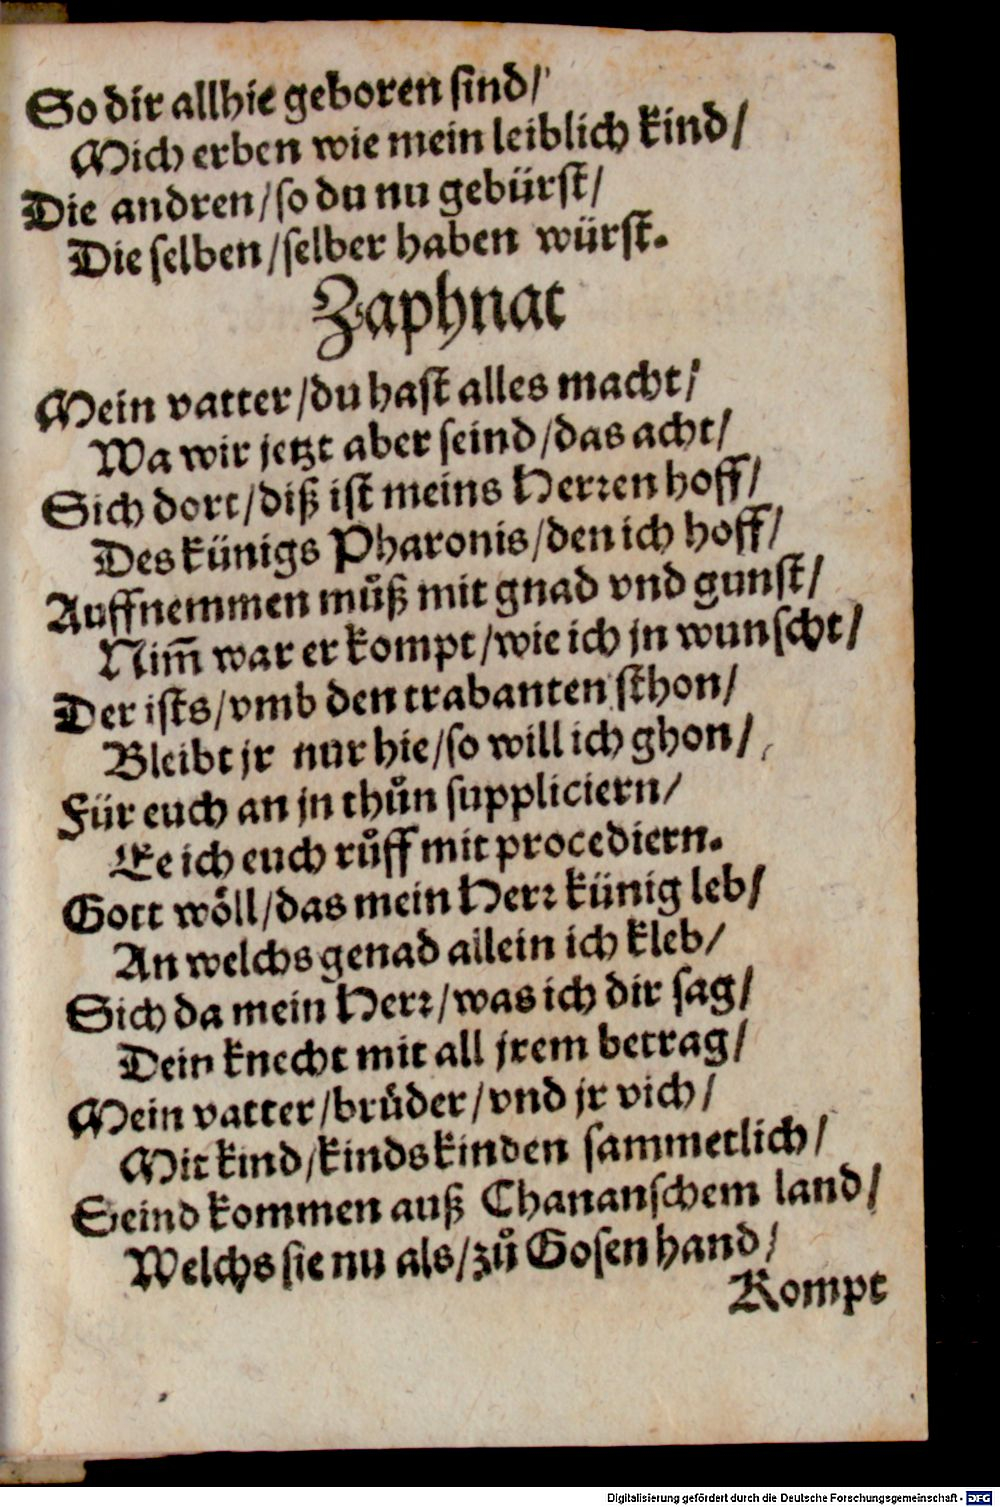 So dir allhie geboren sind/
Mich erben wie mein leiblich kind/
Die andren/so du nu gebürst/
Die selben/selber haben würst.
Zaphnat
Mein vatter/du hast alles macht/
Wa wir jetzt aber seind/das acht/
Sich dort/diß ist meins Herren hoff/
Des künigs Pharonis/den ich hoff/
Auffnemmen můß mit gnad vnd gunst/
Nim̄ war er kompt/wie ich jn wunscht/
Der ists/vmb den trabanten sthon/
Bleibt jr nur hie/so will ich ghon/
Für euch an jn thůn suppliciern/
Ee ich euch růff mit procediern.
Gott wöll/das mein Herr künig leb/
An welchs genad allein ich kleb/
Sich da mein Herr/was ich dir sag/
Dein knecht mit all jrem betrag/
Mein vatter/brůder/vnd jr vich/
Mit kind/kindskinden sammetlich/
Seind kommen auß Chananschem land/
Welchs sie nu als/zů Gosen hand/
Kompt
Digitalisierung gefördert durch die Deutsche Forschungsgemeinschaft - DFG